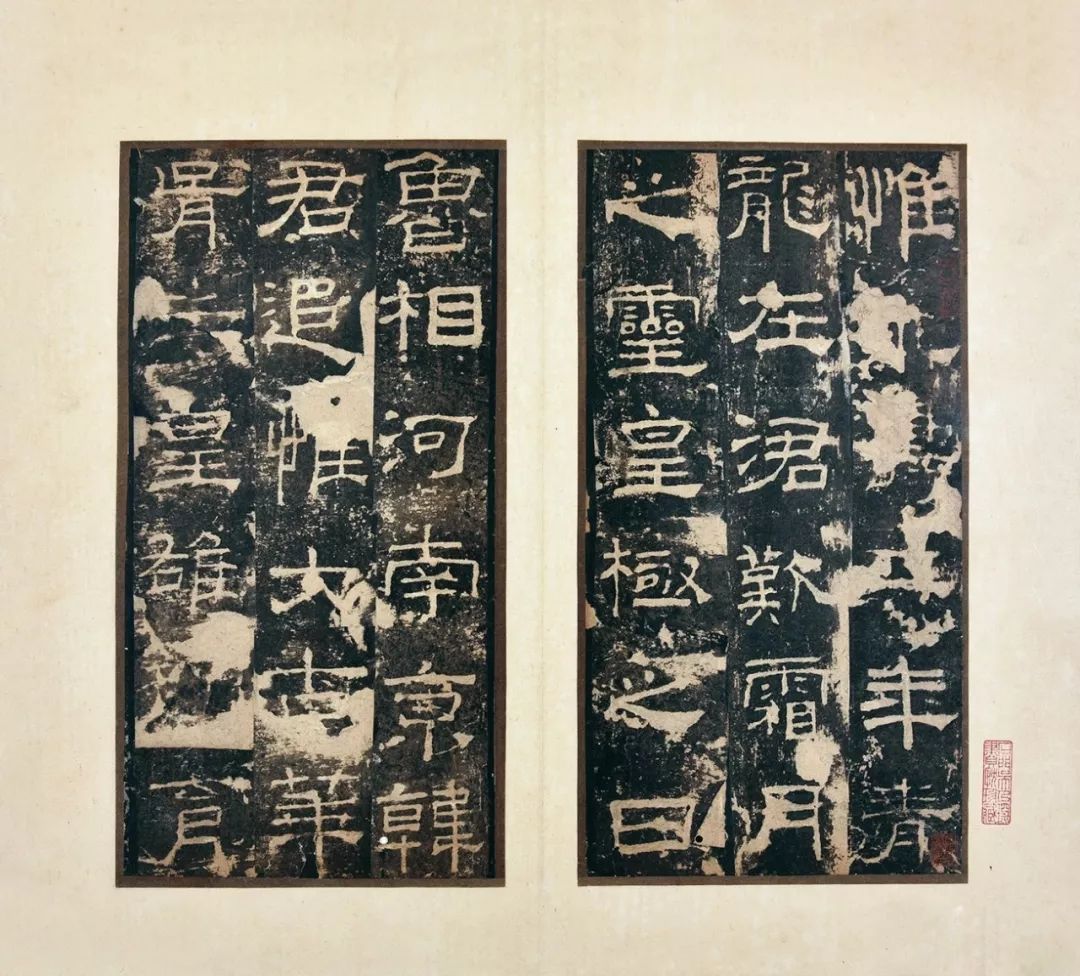 惟 年青
龍在涒歎霜月
之靈皇極之日
魯相河南京韓
君追惟大古華
胥生皇雄 育